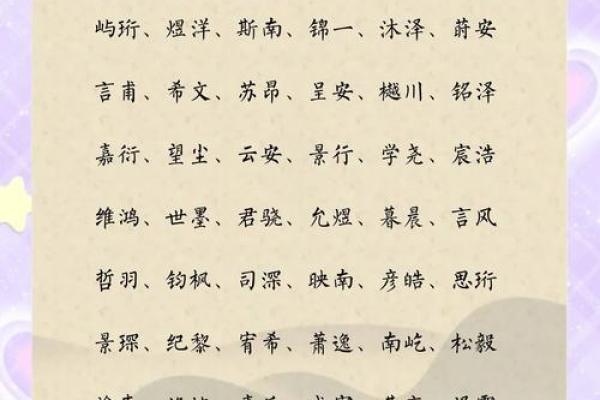 屿珩、煜洋、斯南、锦一、沐泽、莳安
言甫、希文、苏昂、呈安、樾川、铭泽
嘉衍、望尘、云安、景行、学尧、宸浩
维鸿、世墨、君骁、允煜、暮晨、言风
哲羽、钧枫、司深、映南、彦皓、思珩
景琛、纪黎、宥希、萧逸、南屹、松毅